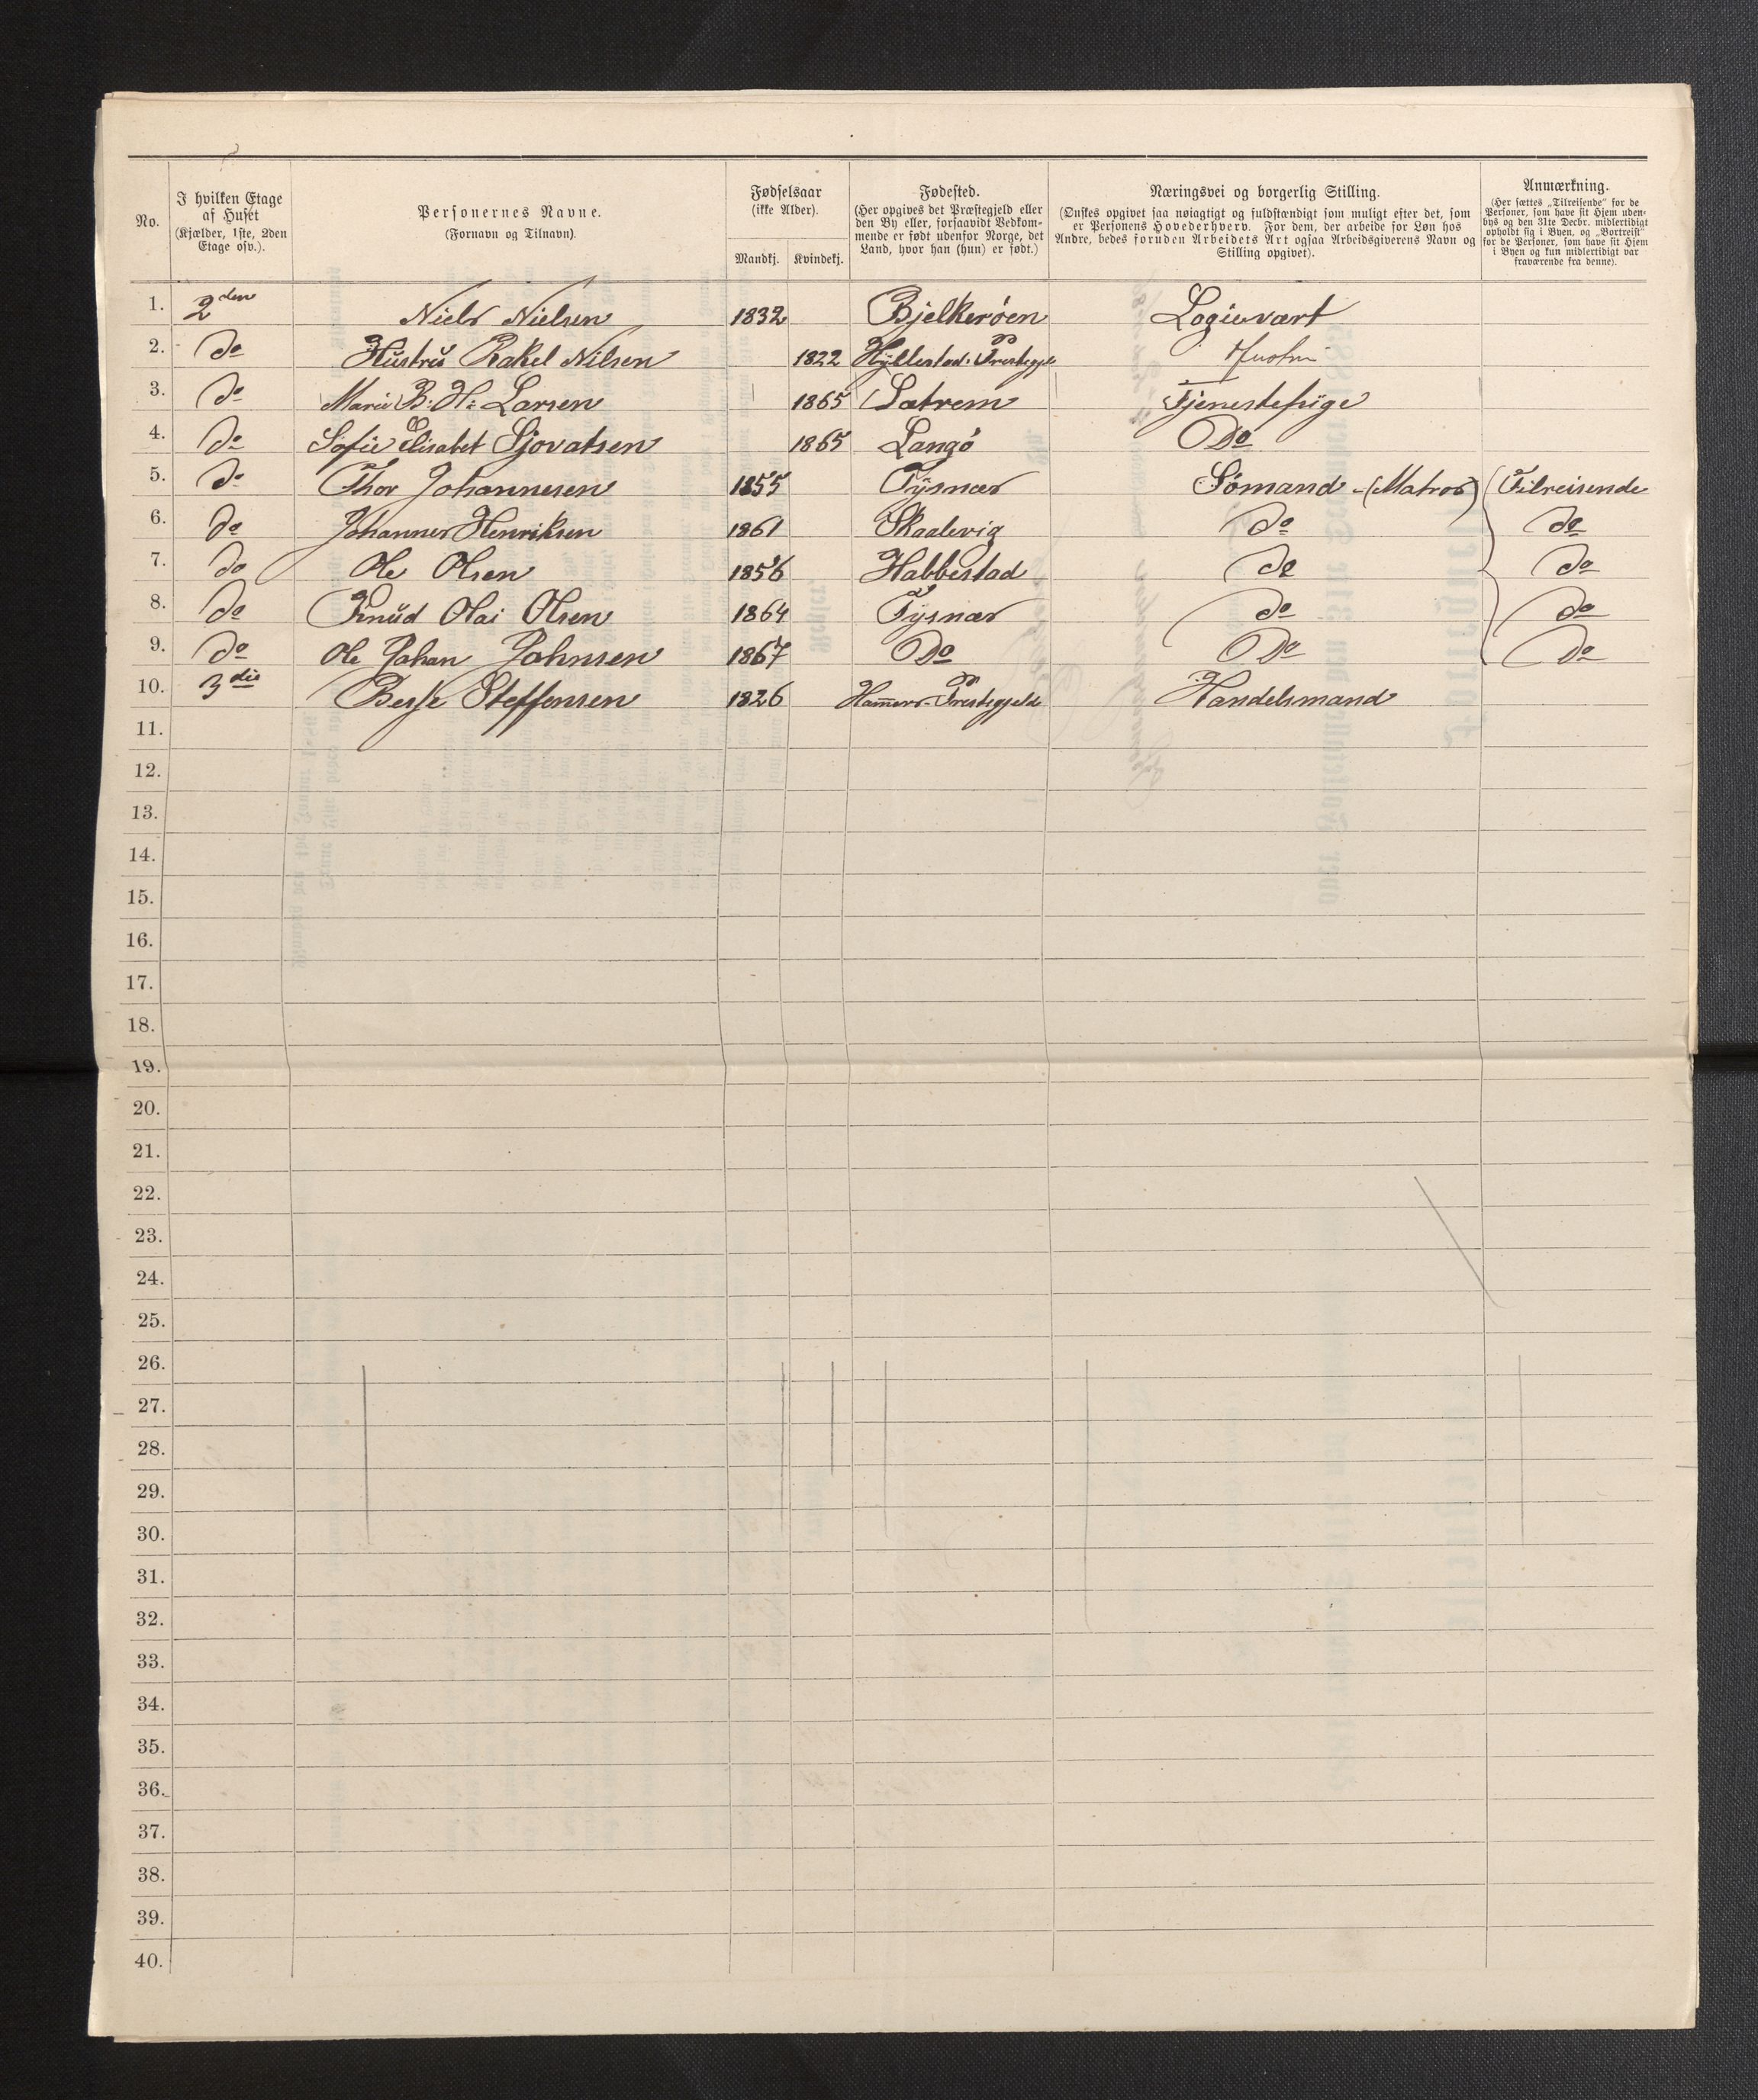 No.
I hvilken Etage
af Huset
(Kjælder, 1ste, 2den
Etage osv.).
Personernes Navne.
(Fornavn og Tilnavn).
Fødselsaar
(ikke Alder).
Mandkj. Kvindekj.
Fødested.
(Her opgives det Præstegjeld eller
den By eller, forsaavidt Vedkom-
mende er født udenfor Norge, det
Land, hvor han (hun) er født.)
Næringsvei og borgerlig Stilling.
(Ønskes opgivet saa nøiagtigt og fuldstændigt som muligt efter det, som
er Personens Hovederhverv. For dem, der arbeide for Løn hos
Andre, bedes foruden Arbeidets Art ogsaa Arbeidsgiverens Navn og
Stilling opgivet).
Anmærkning.
(Her sættes „Tilreisende“ for de
Personer, som have sit Hjem uden-
bys og den 31te Decbr. midlertidigt
opholdt sig i Byen, og „Bortreist“
for de Personer, som have sit Hjem
i Byen og kun midlertidigt var
fraværende fra denne).
1. 2den Niels Nielsen 1832 Bjelkerøen Logievært
2. do Hustru Rakel Nilsen 1822 Hyllestad Prestegjeld Hustru
3. do Marie B: H: Larsen 1865 Satrem Tjenestepige
4. do Sofie Elisabet Sjovatsen 1865 Langö Do
5. do Thor Johannesen 1855 Tysnær Sömand - (Matros) Tilreisende
6. do Johannes Henriksen 1861 Skaalevig do do
7. do Ole Olsen 1856 Habbestad do do
8. do Knud Olai Olsen 1864 Tysnær do do
9. do Ole Johan Johnsen 1867 Do Do Do
10. 3die Berge Steffensen 1826 Hammers-Prestegjeld Handelsmand
11.
12.
13.
14.
15.
16.
17.
18.
19.
20.
21.
22.
23.
24.
25.
26.
27.
28.
29.
30.
31.
32.
33.
34.
35.
36.
37.
38.
39.
40.